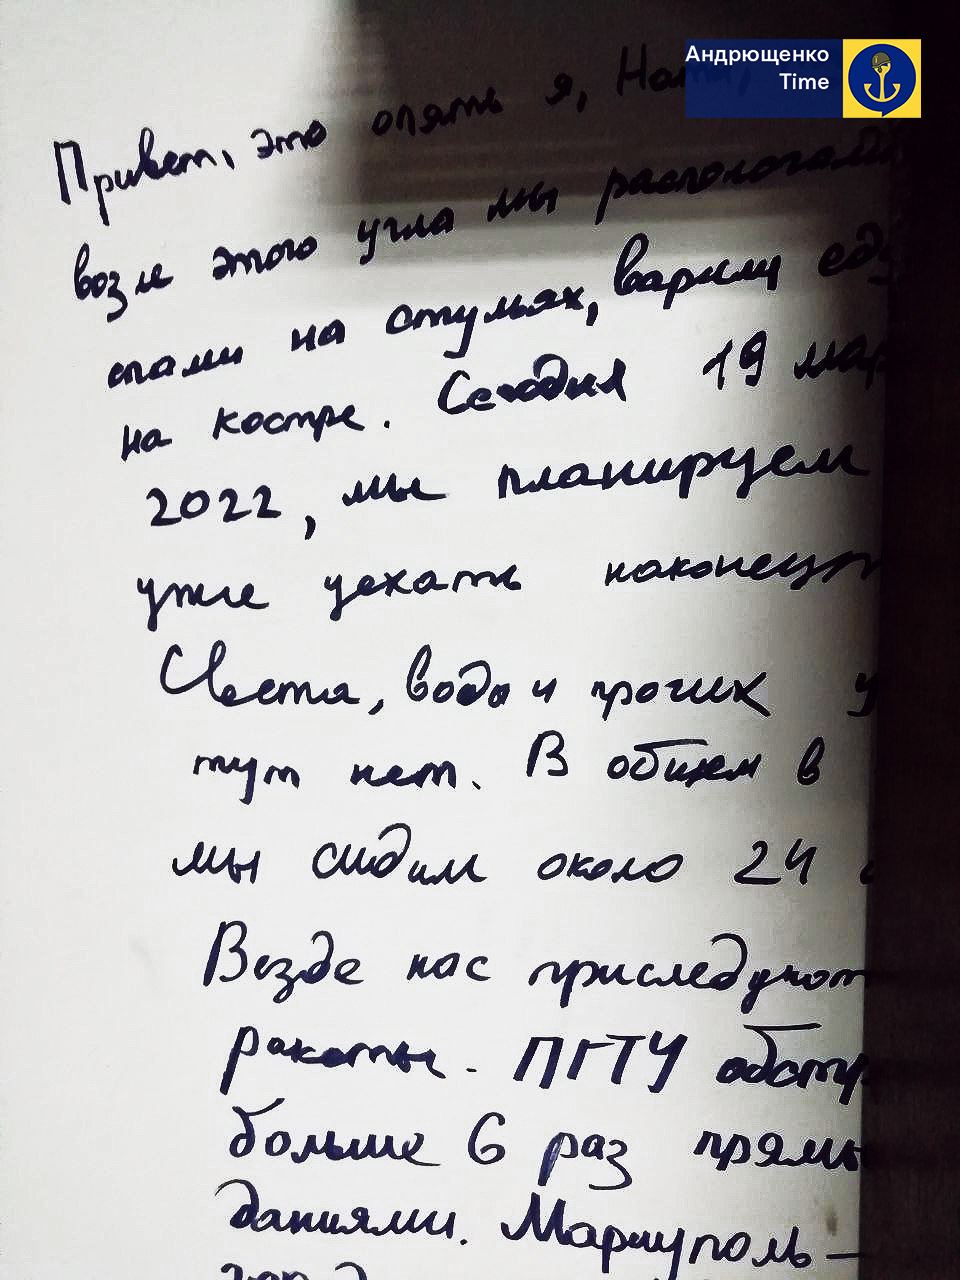 Андрющенко
Time
Привет, это опять я,
возле этого угла мы
спали на стульях, варили
на костре. Сегодня 19
2022, мы планируем
уже уехать
Света, вода и прочих
тут нет. В общем в
мы сидим около 24
Везде нас приследуют
ракеты. ПГТУ
больше 6 раз
даниями. Мариуполь —